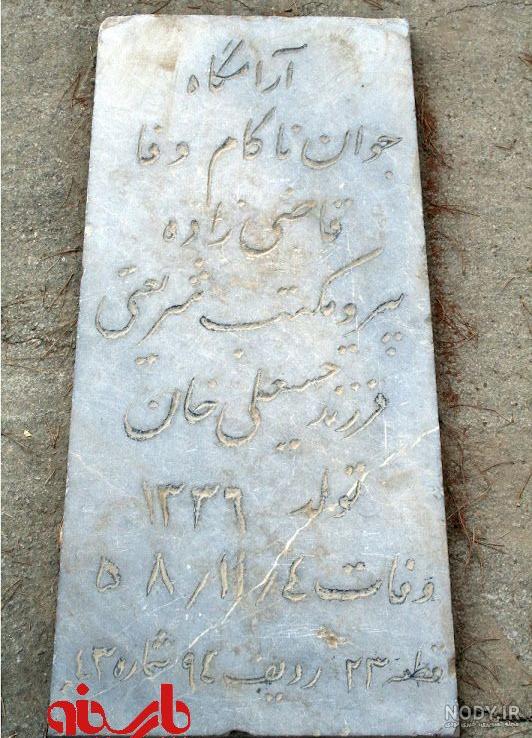 آرامگاه
جوان ناکام وفا
قاضی زاده
پیرو مکتب شریعتی
فرزند حسینعلی خان
تولد ۱۳۳۶
وفات ۴ ر ۱۱ ر ۵۸
قطعه ۲۳ ردیف ۹۴ شماره ۴۳
پارسینه
NODY.IR